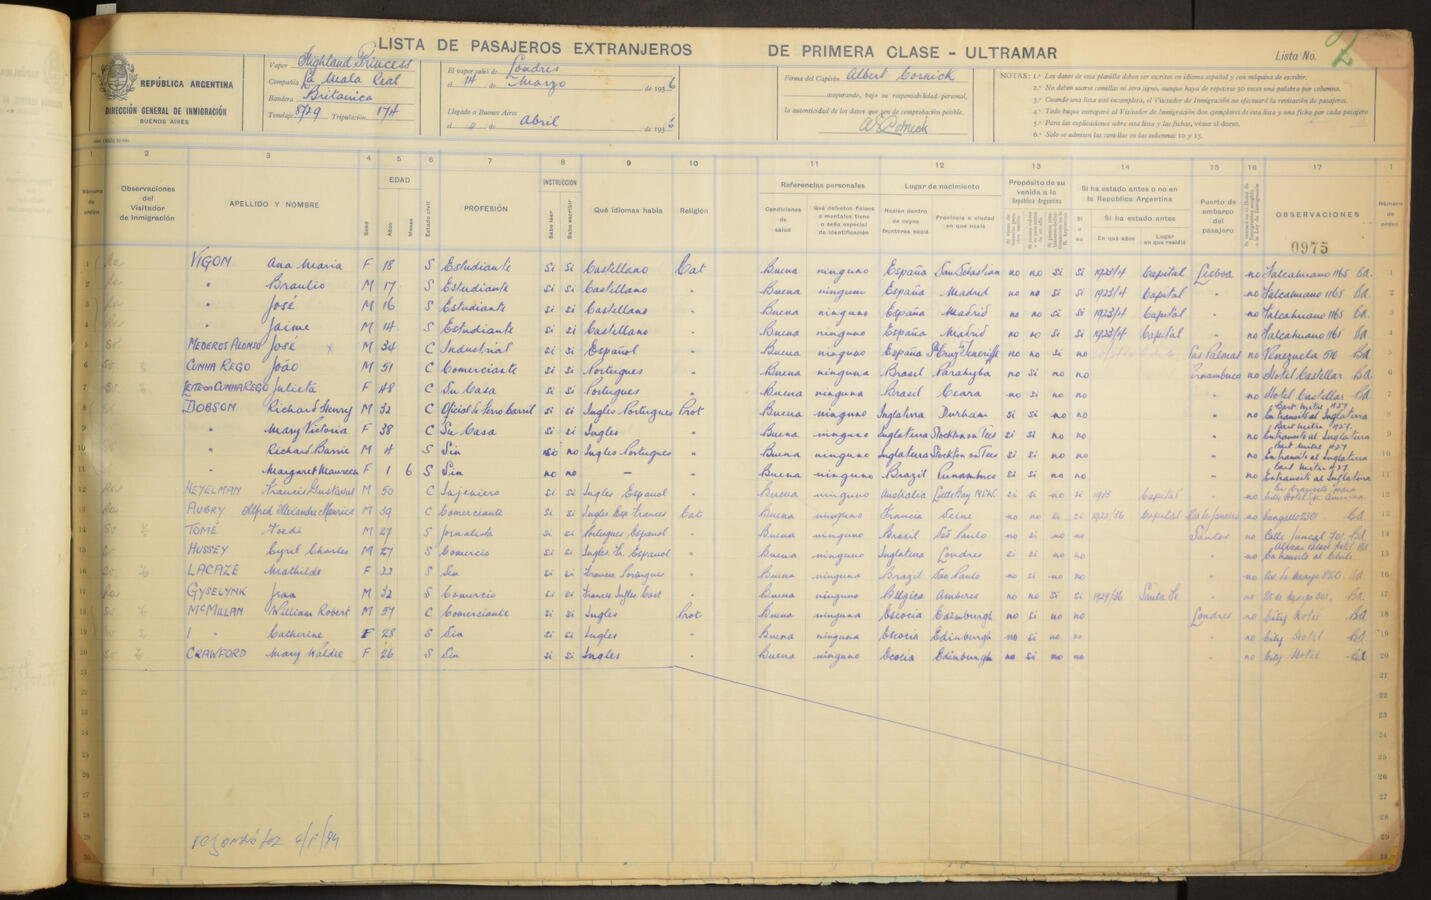 LISTA DE PASAJEROS EXTRANJEROS DE PRIMERA CLASE - ULTRAMAR
Lista No.
REPÚBLICA ARGENTINA
DIRECCIÓN GENERAL DE INMIGRACIÓN
BUENOS AIRES
Vapor Highland Princess
Compañía La Mala Real
Bandera Britanica
Tonelaje 8729 Tripulación 174
El vapor salió de Londres
el 14 de Marzo de 1936
Llegado a Buenos Aires
el 4 de Abril de 193
Firma del Capitán Albert Cornick
asegurando, bajo su responsabilidad personal,
la autenticidad de los datos que son de comprobación posible.
NOTAS: 1.ª Los datos de esta planilla deben ser escritos en idioma español y con máquina de escribir.
2.ª No deben usarse comillas ni otro signo, aunque haya de repetirse 30 veces una palabra por columna.
3.ª Cuando una lista esté incompleta, el Visitador de Inmigración no efectuará la revisación de pasajeros.
4.ª Todo buque entregará al Visitador de Inmigración dos ejemplares de esta lista y una ficha por cada pasajero
5.ª Para las explicaciones sobre esta lista y las fichas, véase al dorso.
6.ª Solo se admiten las comillas en las columnas 10 y 15.
1 2 3 4 5 6 7 8 9 10 11 12 13 14 15 16 17 1
Número de orden
Observaciones del Visitador de Inmigración
APELLIDO Y NOMBRE
Sexo
EDAD
Años
Meses
Estado civil
PROFESIÓN
INSTRUCCIÓN
Sabe leer
Sabe escribir
Qué idiomas habla
Religión
Referencias personales
Condiciones de salud
Qué defectos físicos o mentales tiene o seña especial de identificación
Lugar de nacimiento
Nación dentro de cuyas fronteras nació
Provincia o ciudad en que nació
Propósito de su venida a la República Argentina
Si ha estado antes o no en la República Argentina
Si o no
Si ha estado antes
En qué años
Lugar en que residió
Puerto de embarco del pasajero
OBSERVACIONES
0975
Número de orden
1 VIGON Ana Maria F 18 S Estudiante si si Castellano Cat Buena ninguno España San Sebastian no no si si 1923/4 Capital Lisboa no Talcahuano 1165 Ba. 1
2 " Braulio M 17 S Estudiante si si Castellano " Buena ninguno España Madrid no no si si 1923/4 Capital " no Talcahuano 1165 Ba 2
3 " José M 16 S Estudiante si si Castellano " Buena ninguno España Madrid no no si si 1923/4 Capital " no Talcahuano 1165 Ba. 3
4 " Jaime M 14 S Estudiante si si Castellano " Buena ninguno España Madrid no no si si 1923/4 Capital " no Talcahuano 1165 Ba. 4
5 MEDEROS ALONSO José M 34 C Industrial si si Español " Buena ninguno España Sta Cruz Teneriffe no no si no Las Palmas no Venezuela 510 Ba 5
6 CUNHA REGO João M 51 C Comerciante si si Portugues " Buena ninguna Brasil Parahyba no si no no Pernambuco no Hotel Castellar Ba 6
7 LEITE DA CUNHA REGO Julieta F 48 C Su Casa si si Portugues " Buena ninguno Brasil Ceara no si no no " no Hotel Castellar Ba 7
8 DOBSON Richard Henry M 32 C Oficial de Ferro Carril si si Ingles Portugues Prot Buena ninguno Inglaterra Durham si si no no " no En transito al Inglaterra 8
9 " Mary Victoria F 38 C Su Casa si si Ingles " Buena ninguno Inglaterra Stockton on Tees si si no no " no En transito al Inglaterra 9
10 " Richard Barrie M 4 S Sin no no Ingles Portugues " Buena ninguno Inglaterra Stockton on Tees si si no no " no En transito al Inglaterra 10
11 " Margaret Maureen F 1 6 S Sin no no - " Buena ninguno Brazil Pernambuco si si no no " no En transito al Inglaterra 11
12 HEYELMAN Francis Gustavus M 50 C Ingeniero si si Ingles Espanol " Buena ninguno Australia si si no si Capital " no 12
13 AUBRY Alfred Alexandre Maurice M 39 C Comerciante si si Ingles Esp. Frances Cat Buena ninguno Francia Seine no no si si 1923/36 Capital Rio de Janeiro no 13
14 TOMÉ M 27 S Jornalista si si Portugues Espanol " Buena ninguno Brasil São Paulo no si no no Santos no Calle Juncal 701 Ba 14
15 HUSSEY Cyril Charles M 27 S Comercio si si Ingles Fr. Espanol " Buena ninguno Inglaterra Londres si si no no " no En transito al Chile 15
16 LACAZE Mathilde F 23 S Sin si si Frances Portugues " Buena ninguno Brazil Sao Paulo no si no no " no Av. de Mayo Ba 16
17 GYSELYNK Jean M 32 S Comercio si si Frances Ingles Cast " Buena ninguno Belgica Amberes no no si si 1929/36 Santa Fe " no 25 de Mayo Ba 17
18 MCMILLAN William Robert M 57 C Comerciante si si Ingles Prot Buena ninguna Escocia Edimburgh no si no no Londres no City Hotel Ba 18
19 " Catherine F 28 S Sin si si Ingles " Buena ninguna Escocia Edinburgh no si no no " no City Hotel Ba 19
20 CRAWFORD Mary Waldie F 26 S Sin si si Ingles " Buena ninguno Ecocia Edinburgh no si no no " no City Hotel Ba 20
21
22
23
24
25
26
27
28
29
30